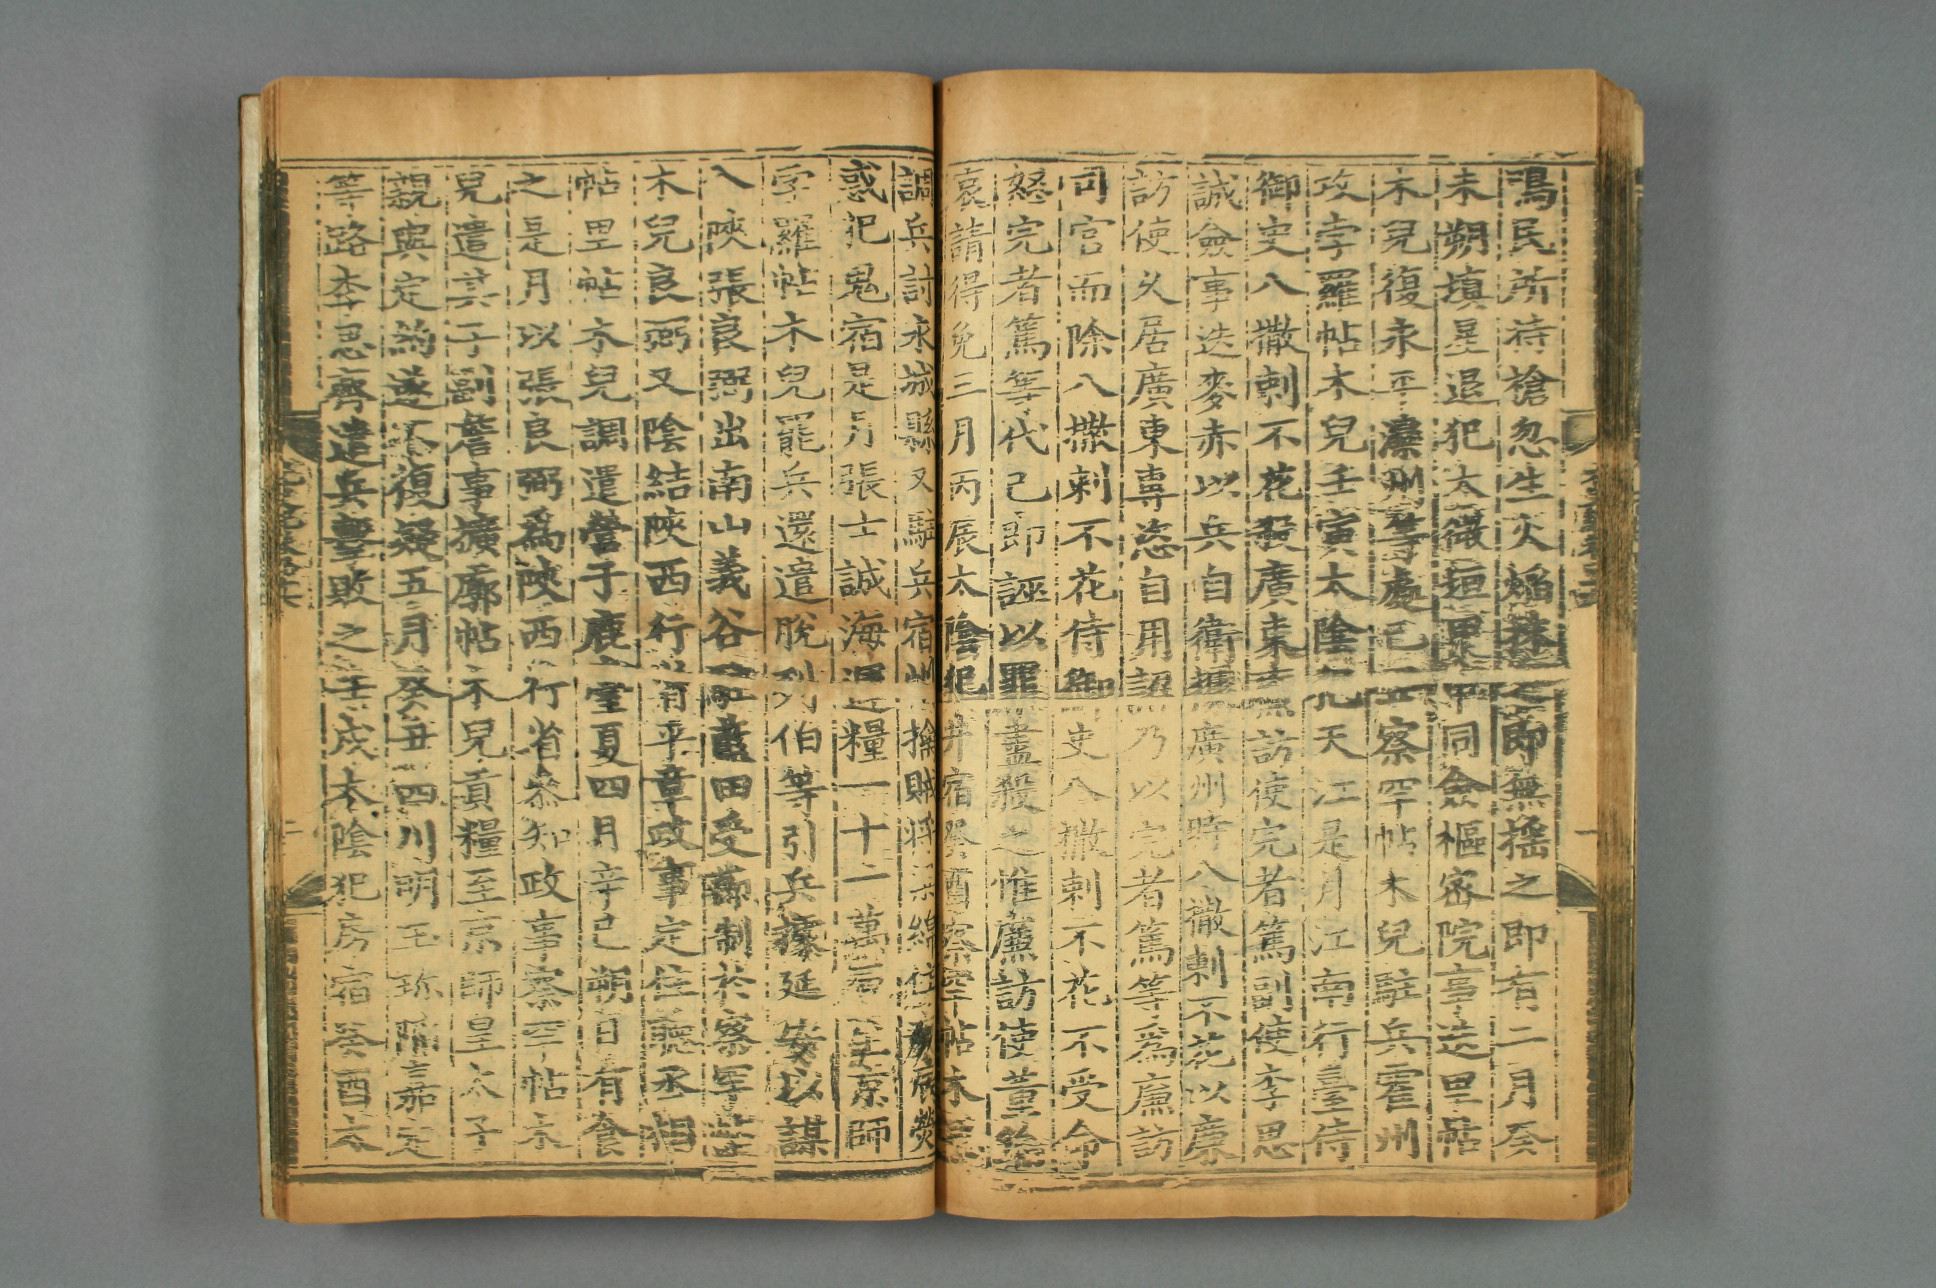 鳴民所持槍忽生火焰抹之即無搖之即有二月癸
未朔填星退犯太微垣界甲同僉樞密院事迭里帖
木兒復永平灤州等處己丑察罕帖木兒駐兵霍州
攻孛羅帖木兒壬寅太陰犯天江是月江南行臺侍
御史八撒剌不花殺廣東廉訪使完者篤副使李思
誠僉事迭麥赤以兵自衛據廣州時八撒剌不花以廉
訪使久居廣東專恣自用詔乃以完者篤等爲廉訪
司官而除八撒剌不花侍御史八撒剌不花不受命
怒完者篤等代己即誣以罪盡殺之惟廉訪使董鑰
哀請得免三月丙辰太陰犯井宿癸酉察罕帖木兒
調兵討永城縣又駐兵宿州擒賊將梁綿住熒
惑犯鬼宿是月張士誠海運糧一十一萬石至京師
孛羅帖木兒罷兵還遣脫列伯等引兵據延安以謀
入陝張良弼出南山義谷駐藍田受節制於察罕帖
木兒良弼又陰結陝西行省平章政事定住聽丞相
帖里帖木兒調遣營于鹿臺夏四月辛巳朔日有食
之是月以張良弼爲陝西行省參知政事察罕帖木
兒遣其子副詹事擴廓帖木兒貢糧至京師皇太子
親與定約遂不復疑五月癸丑四川明玉珍陷嘉定
等路李思齊遣兵擊敗之壬戌太陰犯房宿癸酉太